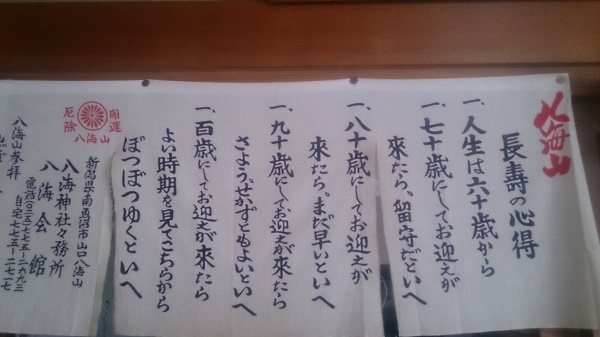 八海山
長寿の心得
一、人生は六十歳から
一、七十歳にしてお迎えが
來たら、留守だといへ
一、八十歳にしてお迎えが
來たら、まだ早いといへ
一、九十歳にしてお迎えが來たら
さよう、せかずともよいといへ
一、百歳にしてお迎えが來たら
よい時期を見てこちらから
ぼつぼつゆくといへ
開運
厄除
八海山
新潟県南魚沼市山口八海山
八海神社々務所
八海会館
電話〇二五ー七七五ー二六九三
自宅七七五ー二七一七
八海山参拝